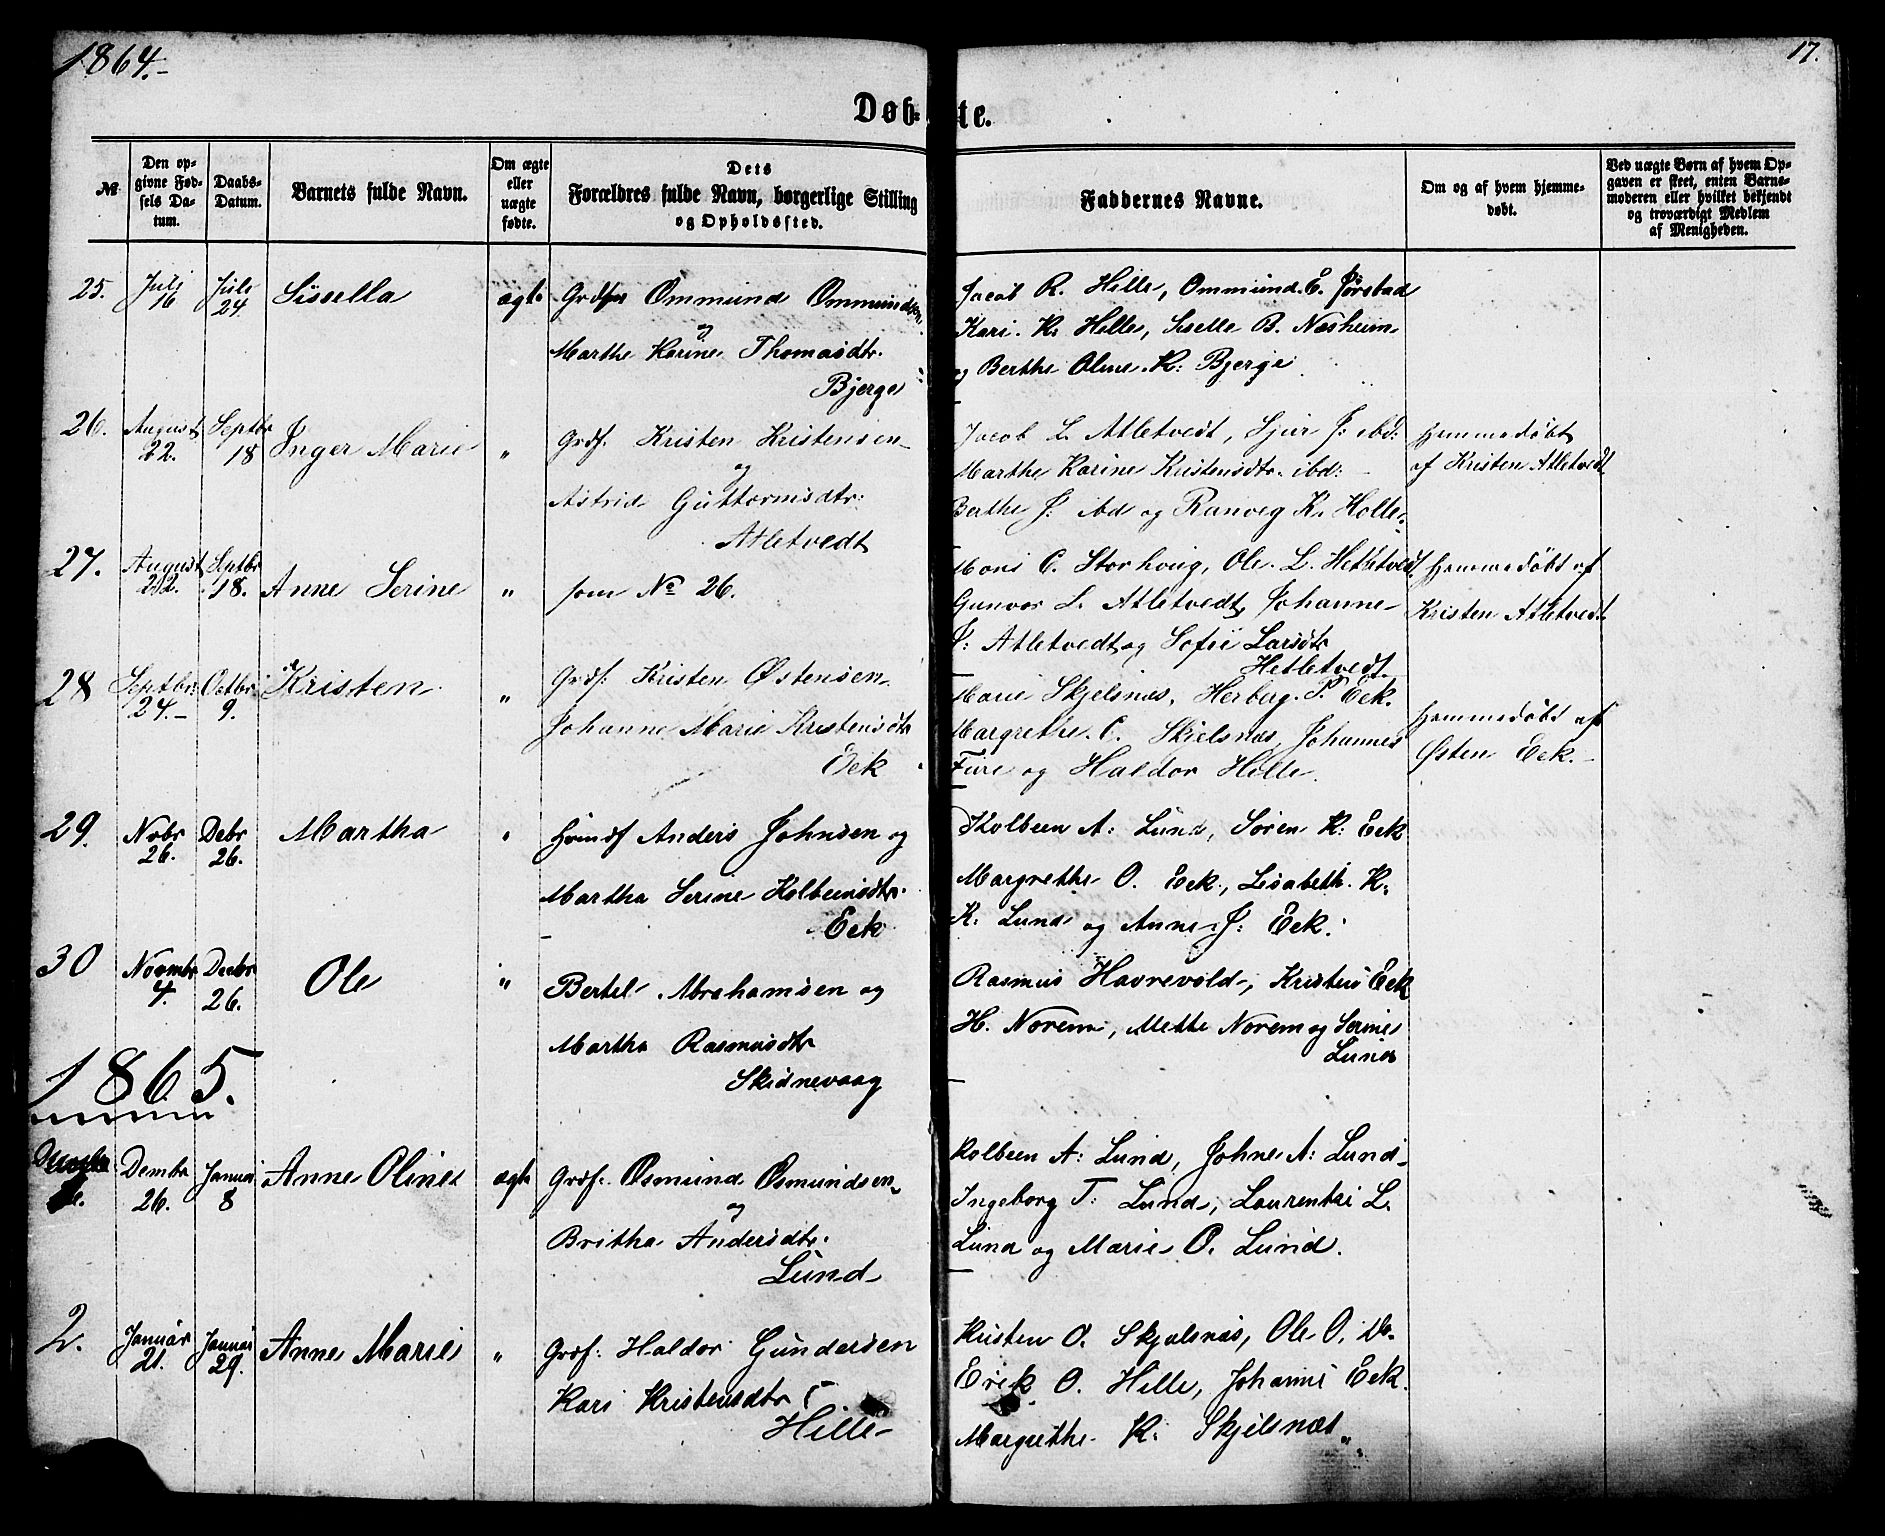 1864.-
17.
Døb-
te.
№
Den op-
givne Fød-
sels Da-
tum.
Daabs-
Datum.
Barnets fulde Navn.
Om ægte
eller
uægte
fødte.
Dets
Forældres fulde Navn, borgerlige Stilling
og Opholdssted.
Faddernes Navne.
Om og af hvem hjemme-
døbt.
Ved uægte Børn af hvem Op-
gaven er skeet, enten Barne-
moderen eller hvilket bekjendt
og troværdigt Medlem
af Menigheden.
25. Juli 16 Juli 24. Sissella ægte
Ommund Ommundsen
og
Marthe Karine Thomasdtr.
Bjerge
Jacob R. Hille, Ommund E. Jørstad
Kari K. Hille, Siselle B. Næsheim
og Berthe Oline K: Bjerge
26. August 22. Septbr 18 Inger Marie "
Grdf. Kristen Kristensen
og
Astrid Guttormsdtr:
Atletvedt
Jacob L. Atletvedt, Sjur J: ibd:
Marthe Karine Kristensdtr. ibd:
Berthe J: ibd og Ranveg K. Hille
Hjemmedøbt
af Kristen Atletvedt
27. August 22. Septbr 18. Anne Serine "
som No 26.
Mons C. Storhoug, Ole L. Hetletvedt
Gunvor L. Atletvedt, Johanne
J: Atletvedt og Sofie Larsdtr
Hetletvedt
Hjemmedøbt af
Kristen Atletvedt
28 Septbr: 24.- Octbr: 9. Kristen "
Grdf: Kristen Østensen
Johanne Marie Kristensdtr
Eek
Marie Skjelsnæs, Herberg P. Eek.
Margrethe C. Skjelsnæs, Johannes
Fure og Haldor Hille.
Hjemmedøbt af
Østen Eek.-
29. Nobr 26. Debr 26. Martha "
Huusf Anders Johnsen og
Martha Serine Kolbeinsdtr.
Eek
Kolbeen A: Lund, Søren K: Eek
Margrethe O. Eek, Lisabeth K:
K. Lund og Anne J: Eek.
30 Novmbr 4. Decbr 26. Ole "
Bertel Abrahamsen og
Martha Rasmusdtr
Skidnevaag
Rasmus Havrevold, Kristen Eek
H. Norem, Mette Norem og Serine
Lund
1865.
Dembr 26. Januai 8 Anne Oline ægte
Grdf: Osmund Osmundsen
og
Britha Andersdtr.
Lund
Kolbeen A: Lund, Johne A: Lund
Ingeborg T: Lund, Laurentsi L.
Lund og Marie O. Lund.
2. Januar 21. Januai 29. Anne Marie "
Grdf: Haldor Gundersen
Kari Kristensdtr
Hille
Kristen O. Skjelsnæs, Ole O.
Erik O. Hille, Johanne Eek.
Margrethe K: Skjelsnæs